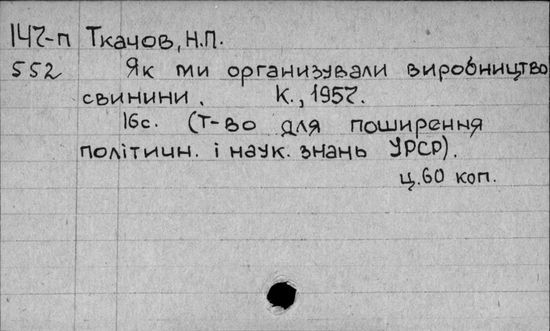 147-п Ткачов, Н.П.
552 Як ми организували виробництво
свинини. К., 1957.
16с. (Т-во для поширення
політичн. і наук. знань УРСР).
ц.60 коп.